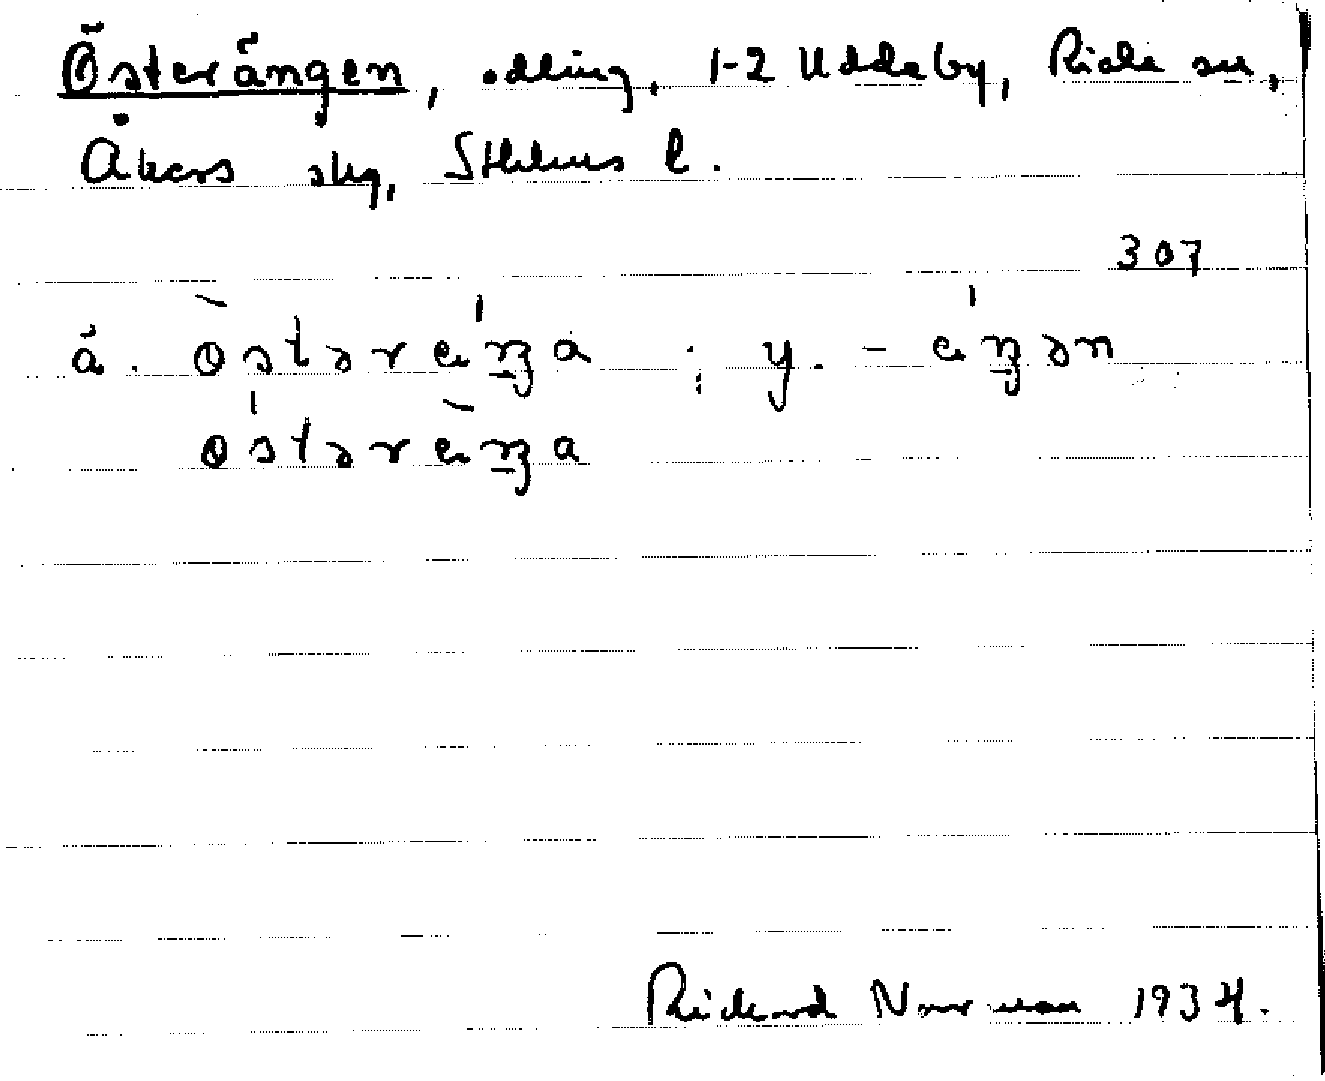 Österängen, odling, 1-2 Uddeby, Riala sn,
Åkers skg, Sthlms l.
307
ä. östəräŋa ; y. - äŋən
östəräŋa
Rickard Norrman 1934.